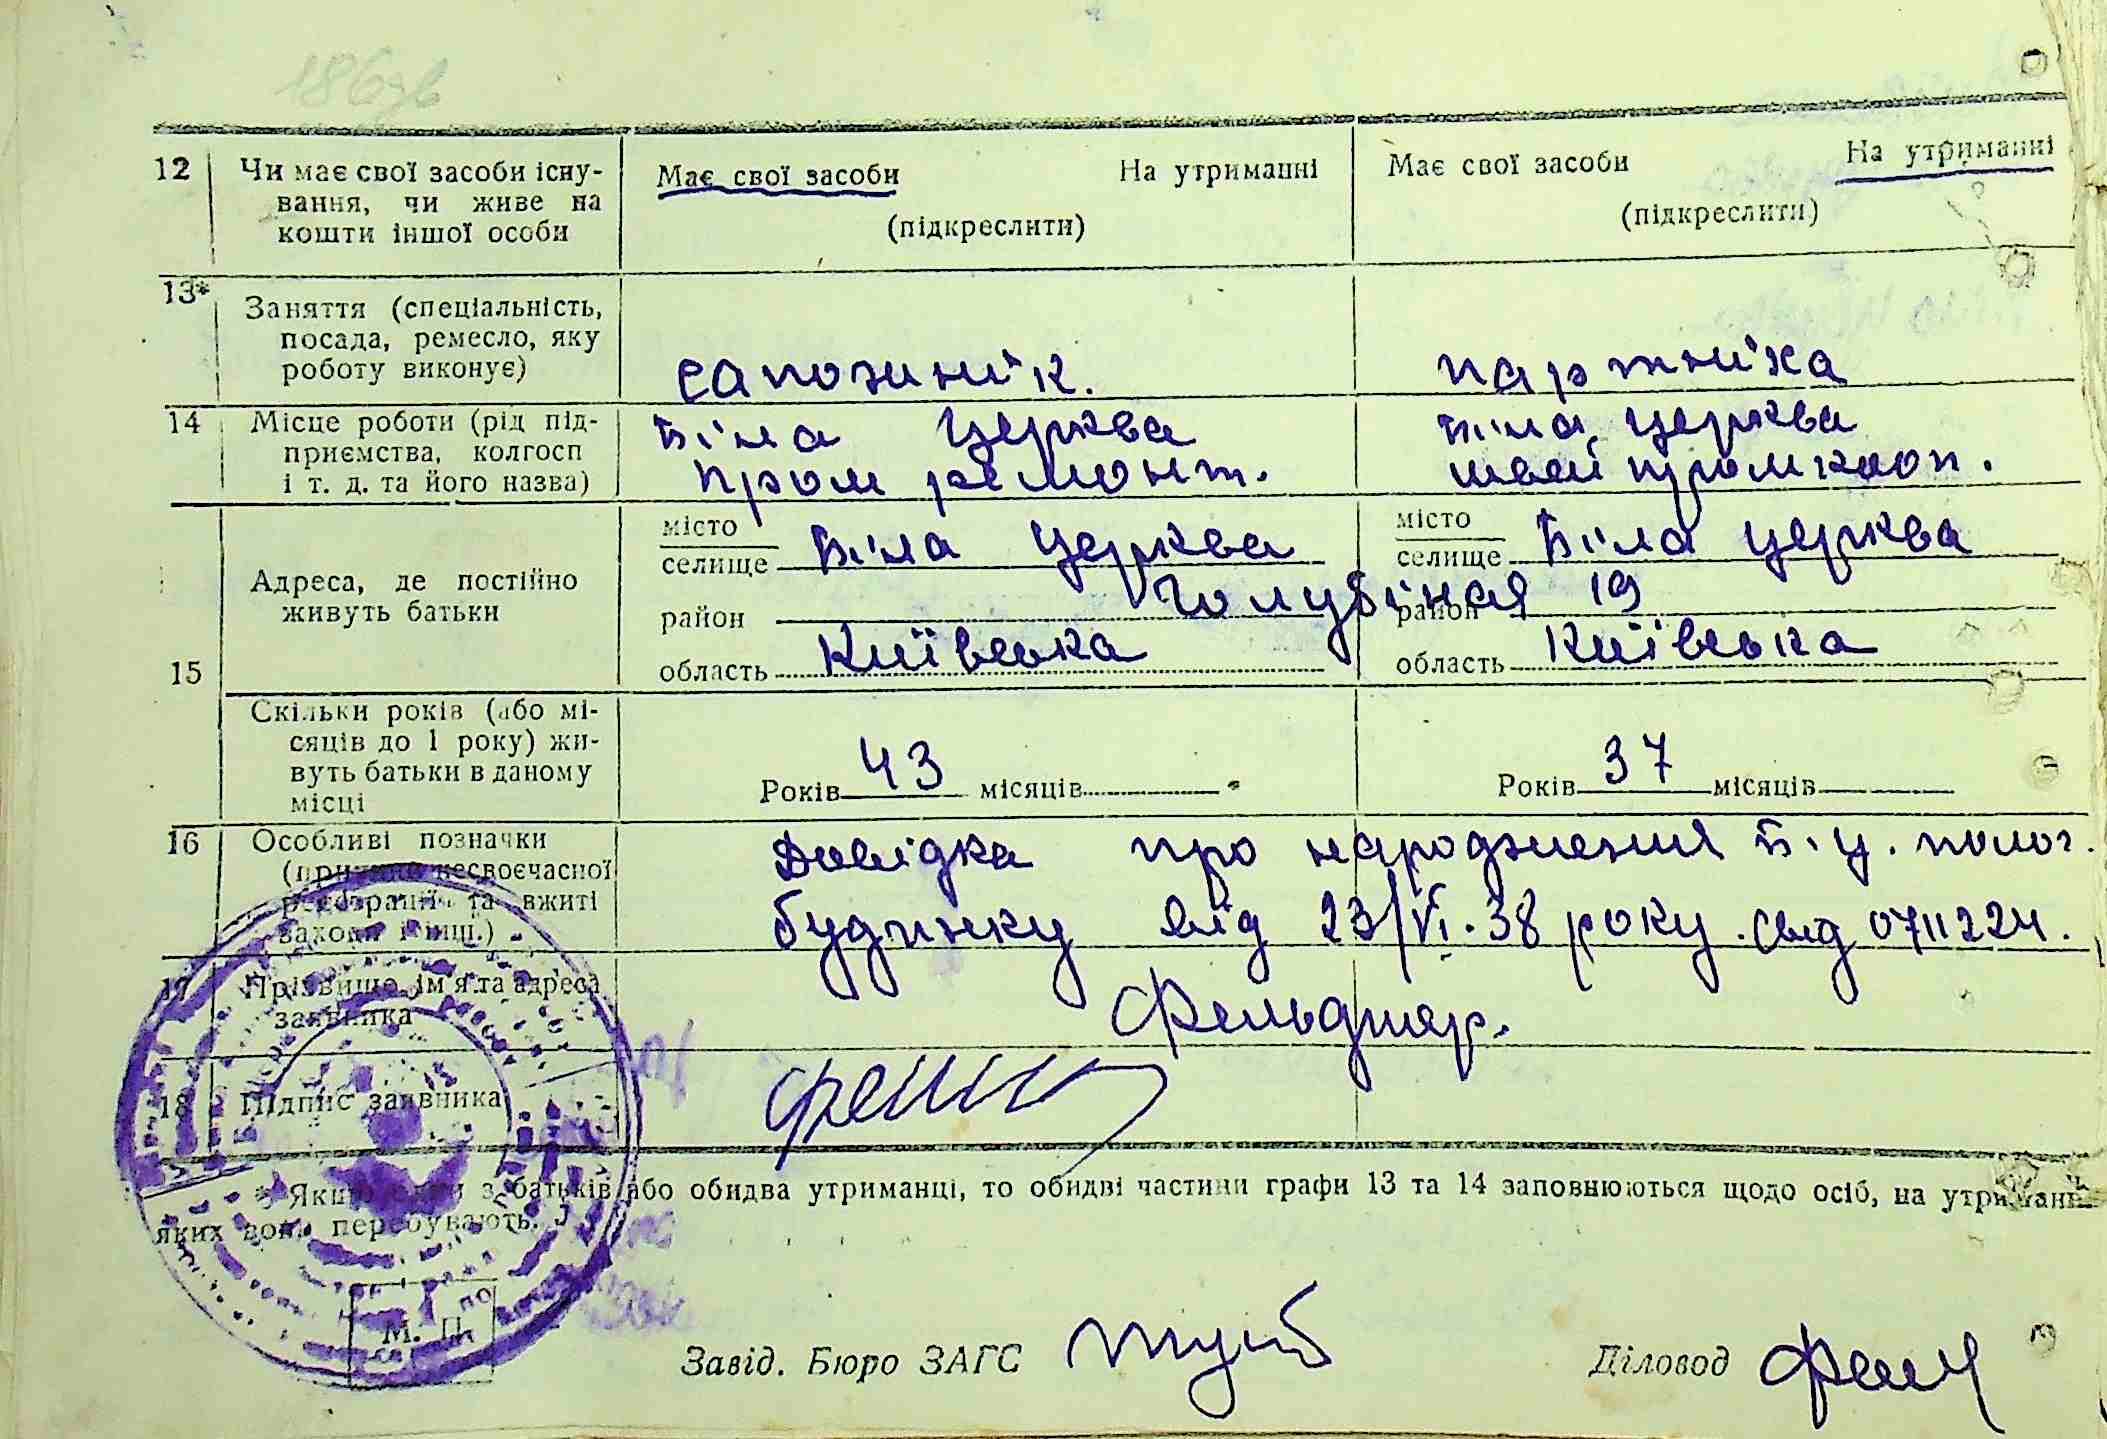 186зв
12 Чи має свої засоби існу-
вання, чи живе на
кошти іншої особи
Має свої засоби На утриманні
(підкреслити)
Має свої засоби На утриманні
(підкреслити)
13* Заняття (спеціальність,
посада, ремесло, яку
роботу виконує)
сапожник.
партніха
14 Місце роботи (рід під-
приємства, колгосп
і т. д. та його назва)
Біла Церква
пром ремонт.
Біла Церква
швей промкооп.
15 Адреса, де постійно
живуть батьки
місто
селище Біла Церква
район Голубіная 19
область Київська
місто
селище Біла Церква
район
область Київська
Скільки років (або мі-
сяців до 1 року) жи-
вуть батьки в даному
місці
Років 43 місяців
Років 37 місяців
16 Особливі позначки
(причина несвоєчасної
реєстрації та вжиті
заходи і інш.)
Довідка про народження Б.Ц. полог.
будинку від 23/VI.38 року. свід 0711224.
17 Прізвище, ім'я та адреса
заявника
Фельдшер.
18 Підпис заявника
* Якщо один з батьків або обидва утриманці, то обидві частини графи 13 та 14 заповнюються щодо осіб, на утриманні
яких вони перебувають.
М. П.
Завід. Бюро ЗАГС
Діловод